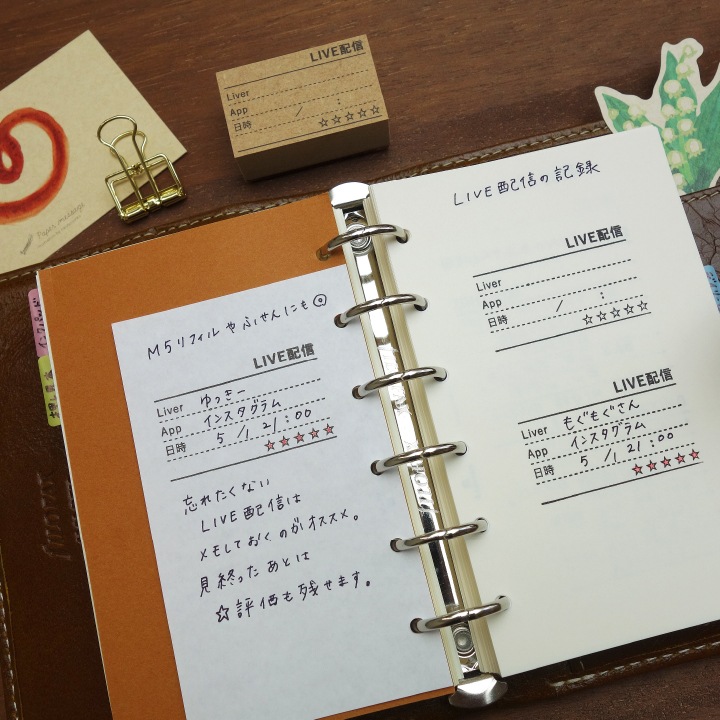 LIVE配信
Liver
App
日時 / :
☆☆☆☆☆
Paper message
M5リフィルやふせんにも◎
LIVE配信
Liver ゆっきー
App インスタグラム
日時 5/1 21:00
☆☆☆☆☆
忘れたくない
LIVE配信は
メモしておくのがオススメ。
見終ったあとは
☆評価も残せます。
LIVE配信の記録
LIVE配信
Liver
App
日時 / :
☆☆☆☆☆
LIVE配信
Liver もぐもぐさん
App インスタグラム
日時 5/1 21:00
☆☆☆☆☆